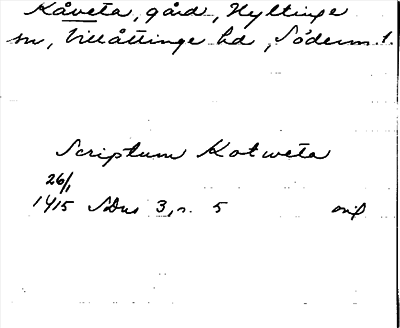 Kåveta, gård, Hyltinge
sn, Villåttinge hd, Söderm. l.
Scriptum Katweta
26/1
1415 SDns 3, s. 5 orig